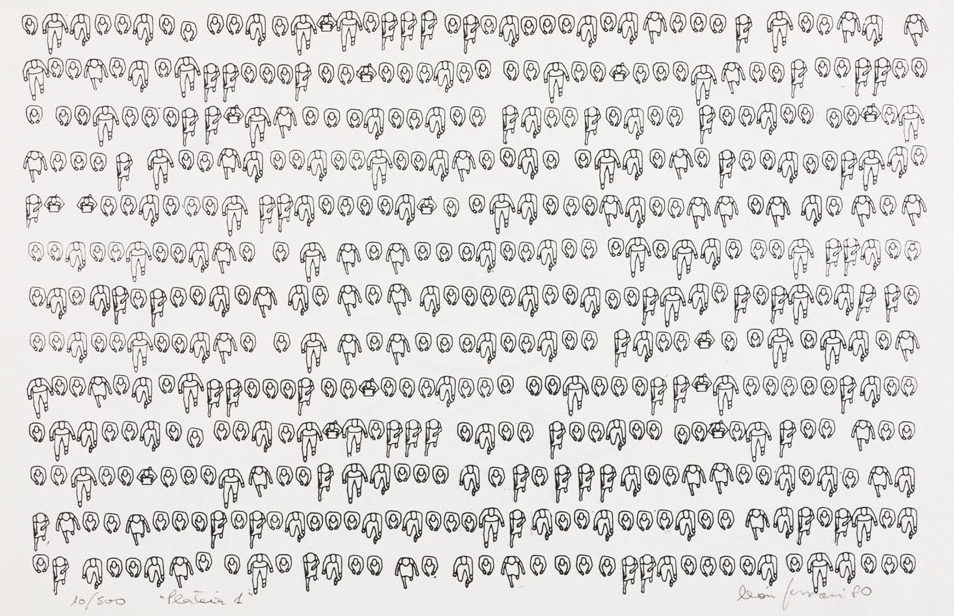 10/500 "Plateia 1" leon ferrari 80